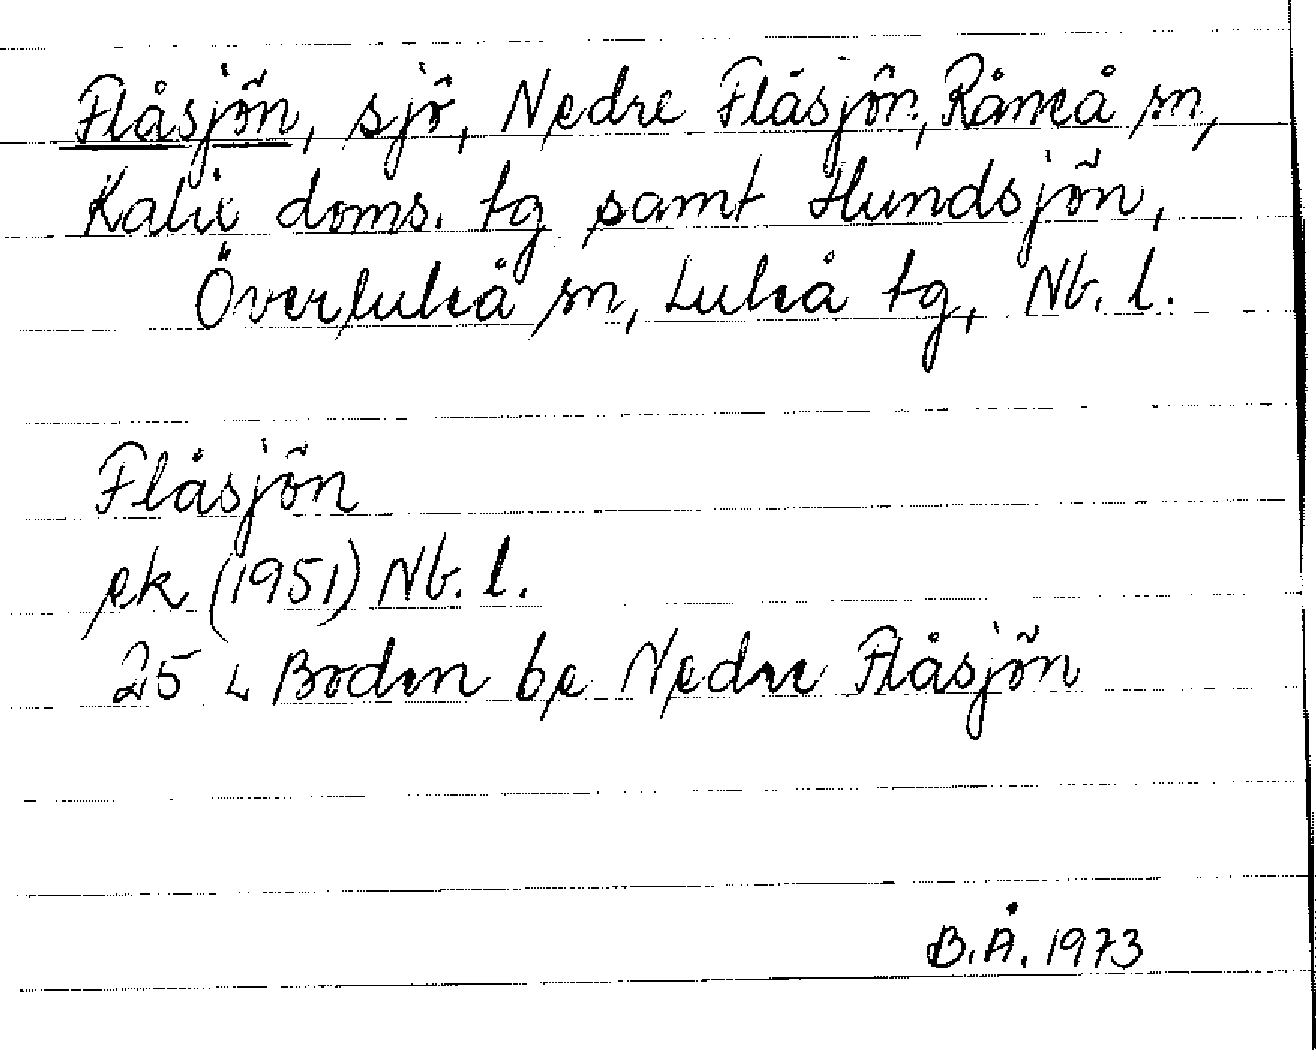 Flåsjön, sjö, Nedre Flåsjön, Råneå sn,
Kalix doms. tg samt Hundsjön,
Överluleå sn, Luleå tg, Nb. l.
Flåsjön
ek (1951) Nb. l.
25 L Boden be Nedre Flåsjön
B.Å. 1973